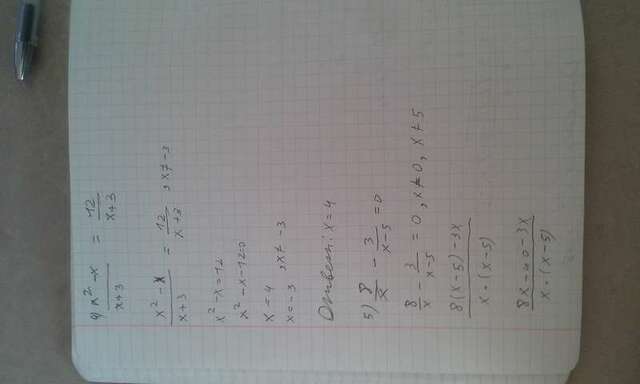 4) x² - x / x+3 = 12 / x+3
x² - x / x+3 = 12 / x+3 , x ≠ -3
x² - x = 12
x² - x - 12 = 0
x = 4
x = -3 , x ≠ -3
Ответ: x = 4
5) 8/x - 3/x-5 = 0
8/x - 3/x-5 = 0 , x ≠ 0 , x ≠ 5
8(x-5) - 3x / x · (x-5)
8x - 40 - 3x / x · (x-5)